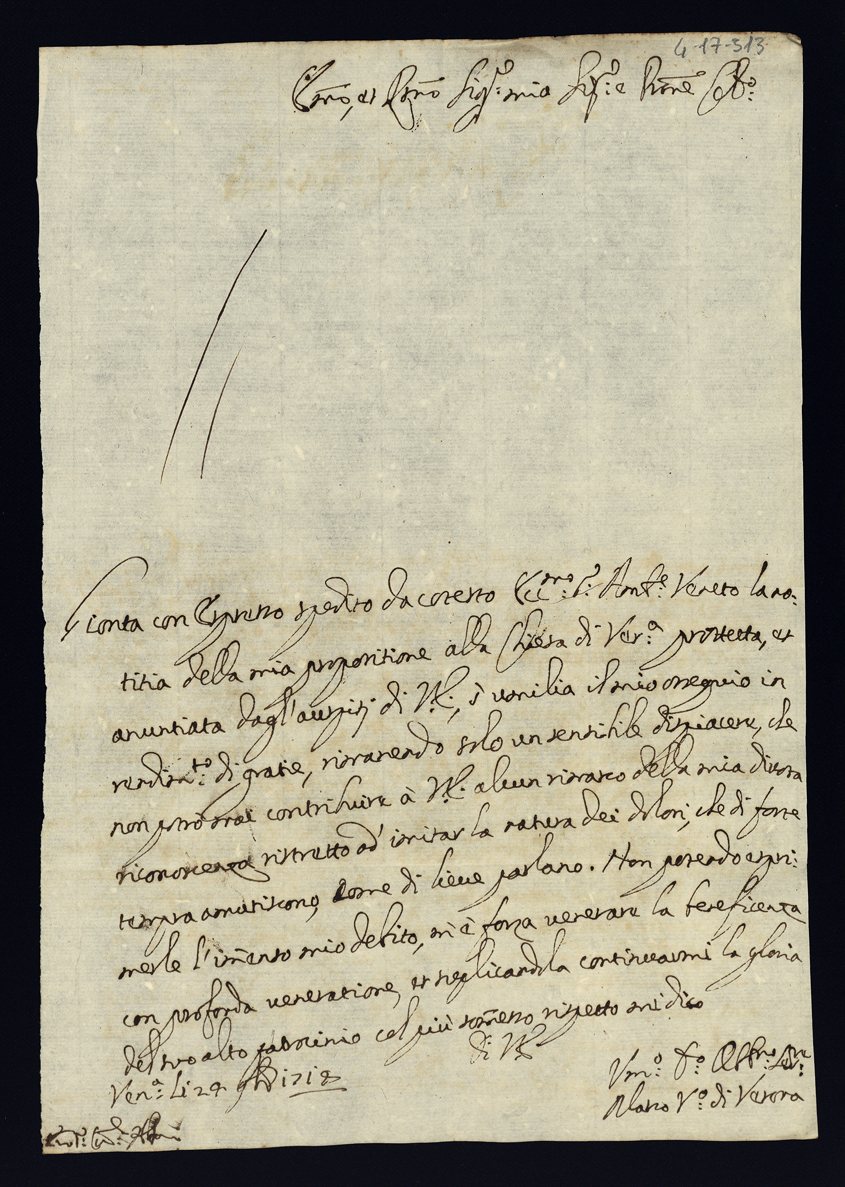 4-17-313
Em̃o, et Rm̃o Sig.r mio Sig.r e Pro͂ne Col.mo
Gionta con Espresso spedito da cotesto Ecc.mo S.r Amb.re Veneto la no:
titia della mia propositione alla Chiesa di Ver.a protetta, et
anuntiata dagl'auspitij di V.E., s'umilia il mio ossequio in
rendim.to di gratie, rimanendo solo un sensibile dispiacere, che
non potrò mai contribuire à V.E. alcun rimarco della mia divota
riconoscenza ristretto ad' imitar la natura dei dolori, che di forte
tempra amutiscono, come di lieve parlano. Non potendo espri:
merle l'im̃enso mio debito, m'è forza venerare la beneficenza
con profonda veneratione, et suplicandola continuarmi la gloria
del suo alto patrocinio col più som̃esso rispetto mi dico
di V.E.
Ven.a Li 24 1718
Um.o D.o Obb.mo Ser.re
Marco V.o di Verona